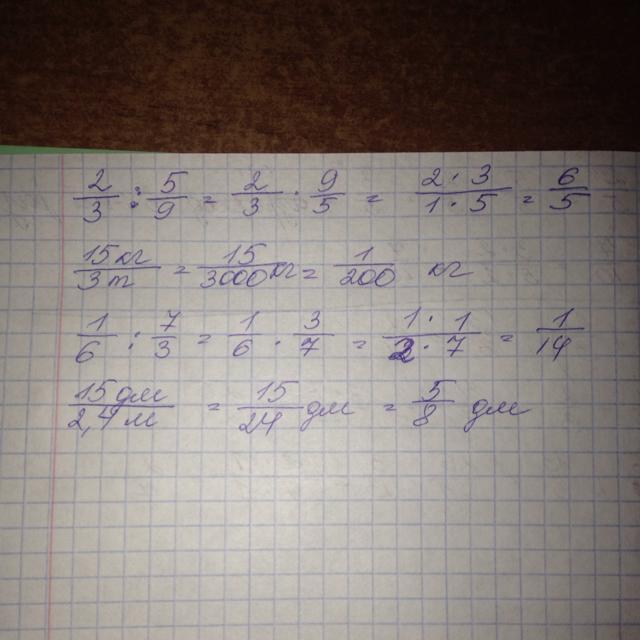 2/3 : 5/9 = 2/3 · 9/5 = 2·3/1·5 = 6/5
15 кг/3 т = 15/3000 кг = 1/200 кг
1/6 : 7/3 = 1/6 · 3/7 = 1·1/2·7 = 1/14
15 дм/2,4 м = 15/24 дм = 5/8 дм